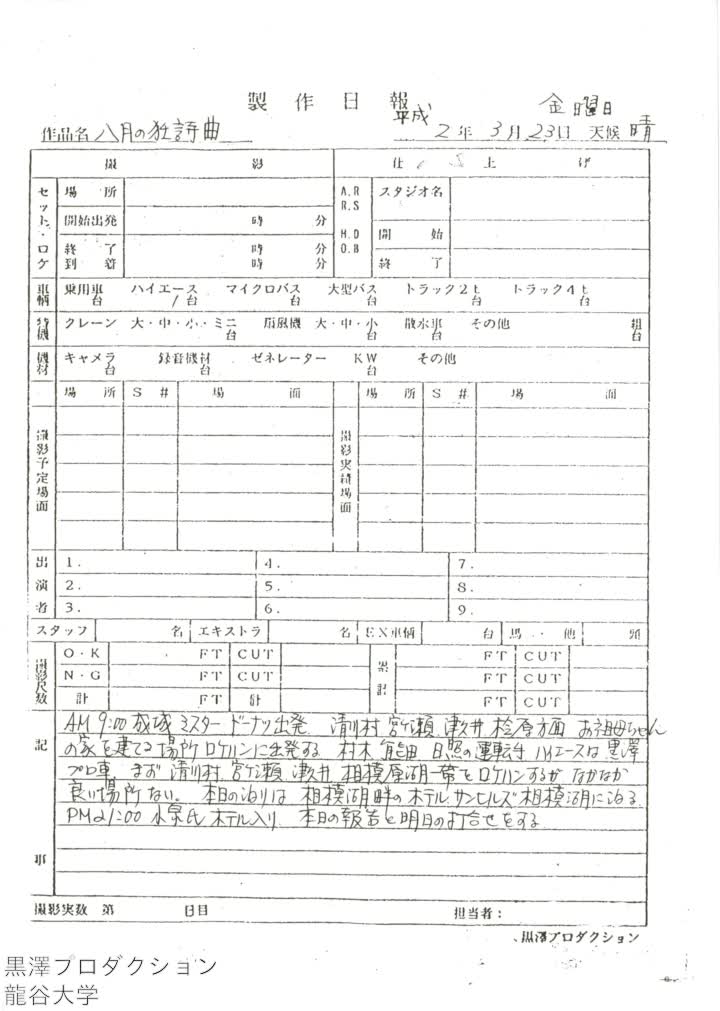 製作日報
平成 金曜日
作品名 八月の狂詩曲 2年 3月 23日 天候 晴
撮影 仕上げ
セット・ロケ 場所 A.R R.S スタジオ名
開始出発 時 分
H.D O.B 開始
終了 時 分
到着 時 分 終了
車輌 乗用車 台 ハイエース 1台 マイクロバス 台 大型バス 台 トラック2t 台 トラック4t 台
特機 クレーン 大・中・小・ミニ 台 扇風機 大・中・小 台 散水車 台 その他 組 台
機材 キャメラ 台 録音機材 台 ゼネレーター KW 台 その他
場所 S# 場面 場所 S# 場面
撮影予定場面 撮影実績場面
出演者
1. 4. 7.
2. 5. 8.
3. 6. 9.
スタッフ 名 エキストラ 名 EX車輌 台 馬・他 頭
撮影尺数 O・K FT CUT 累計 FT CUT
N・G FT CUT FT CUT
計 FT 計 FT CUT
記事
AM 9:00 成城 ミスタードーナツ出発 清川村 宮ケ瀬 津久井 桧原方面 お祖母ちゃん
の家を建てる場所ロケハンに出発する 村木 熊田 日照の運転手 ハイエースは黒澤
プロ車 まず 清川村 宮ケ瀬 津久井 相模原湖一帯をロケハンするが なかなか
良い場所ない。 本日の泊りは 相模湖畔のホテル サンヒルズ相模湖に泊る
PM21:00 小泉氏 ホテル入り、本日の報告と明日の打合せをする
撮影実数 第 日目 担当者:
黒澤プロダクション
黒澤プロダクション
龍谷大学